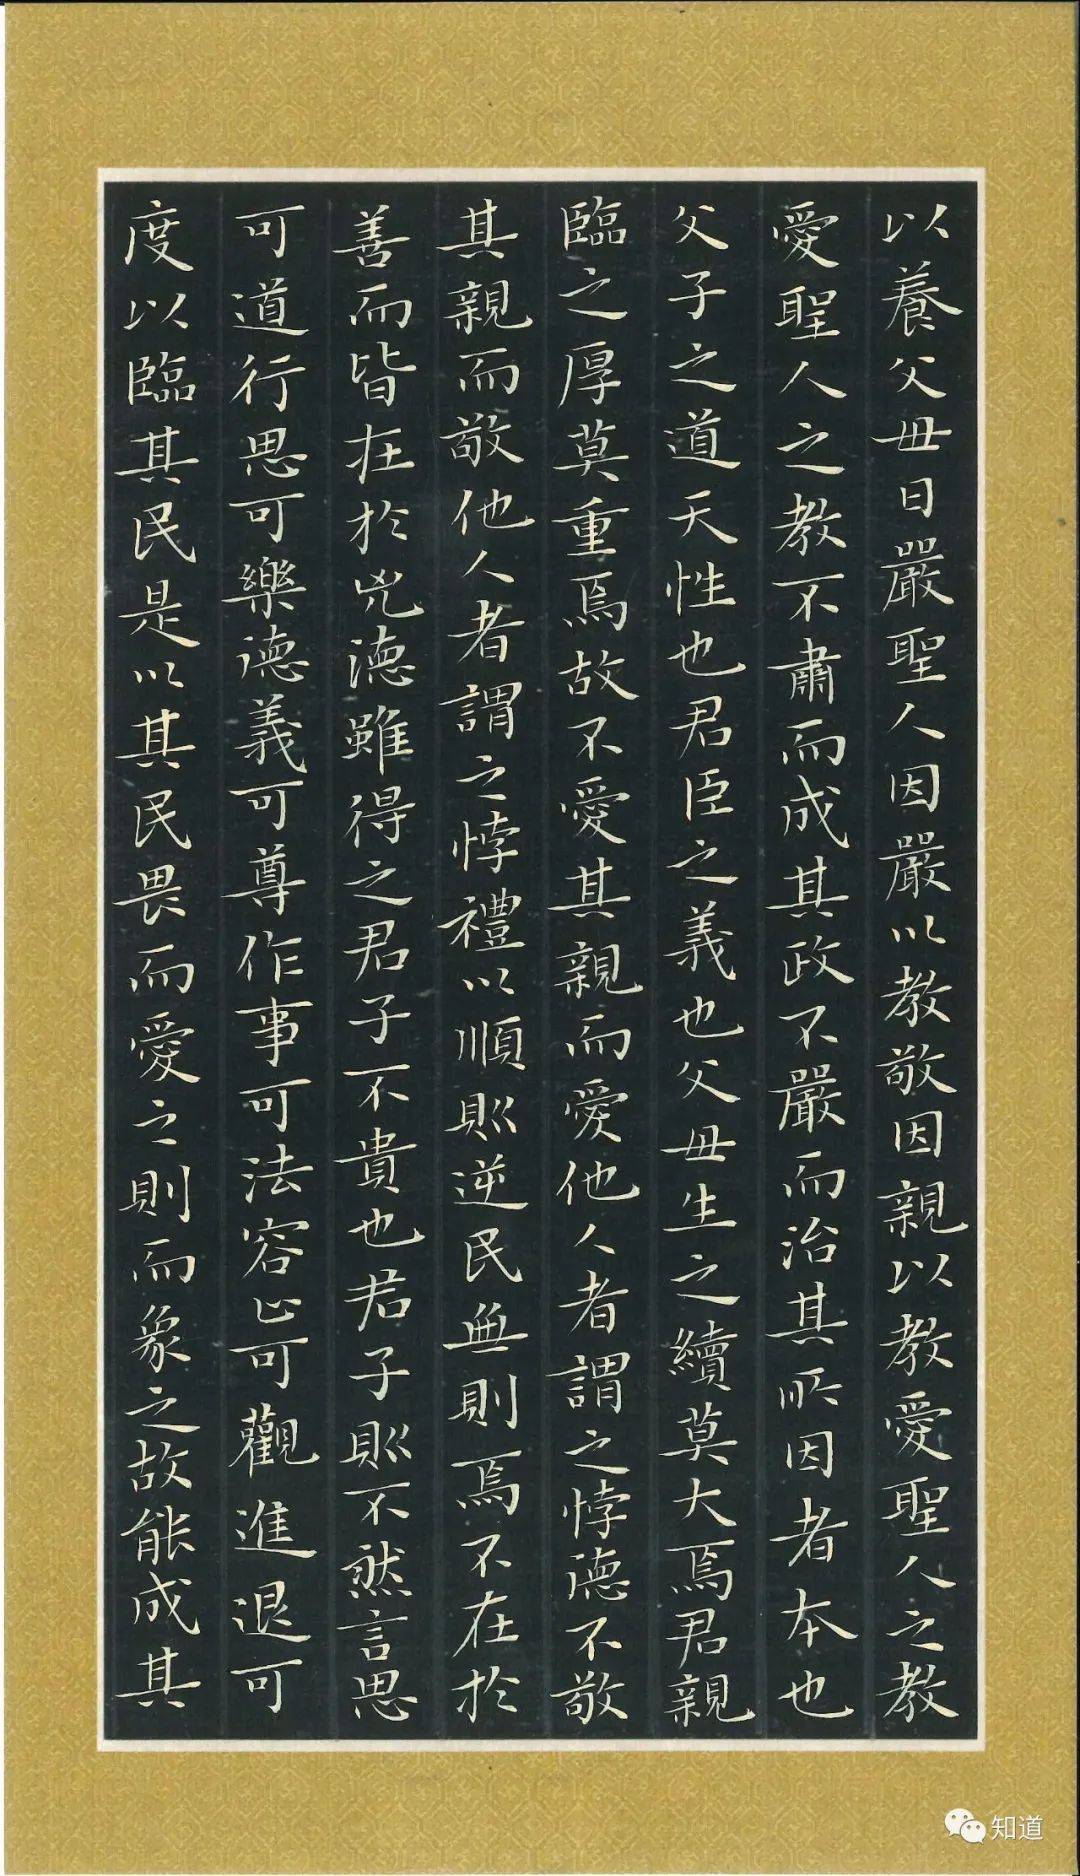 以養父母日嚴聖人因嚴以教敬因親以教愛聖人之教
愛聖人之教不肅而成其政不嚴而治其所因者本也
父子之道天性也君臣之義也父母生之續莫大焉君親
臨之厚莫重焉故不愛其親而愛他人者謂之悖德不敬
其親而敬他人者謂之悖禮以順則逆民無則焉不在於
善而皆在於兇德雖得之君子不貴也君子則不然言思
可道行思可樂德義可尊作事可法容止可觀進退可
度以臨其民是以其民畏而愛之則而象之故能成其
知道